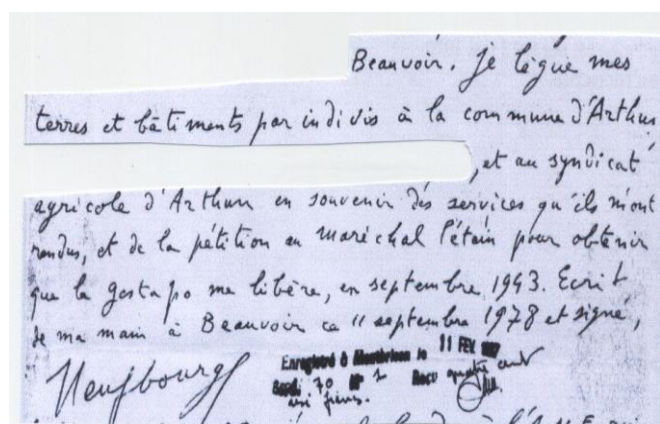 Beauvoir. Je lègue mes
terres et bâtiments par indivis à la commune d'Arthun
, et au syndicat
agricole d'Arthun en souvenir des services qu'ils m'ont
rendus, et de la pétition au maréchal Pétain pour obtenir
que la gestapo me libère, en septembre 1943. Ecrit
de ma main à Beauvoir ce 11 septembre 1978 et signé,
Neufbourg
Enregistré à Montbrison le 11 FEV. 
70 N° 1 Reçu quatre cent
francs.